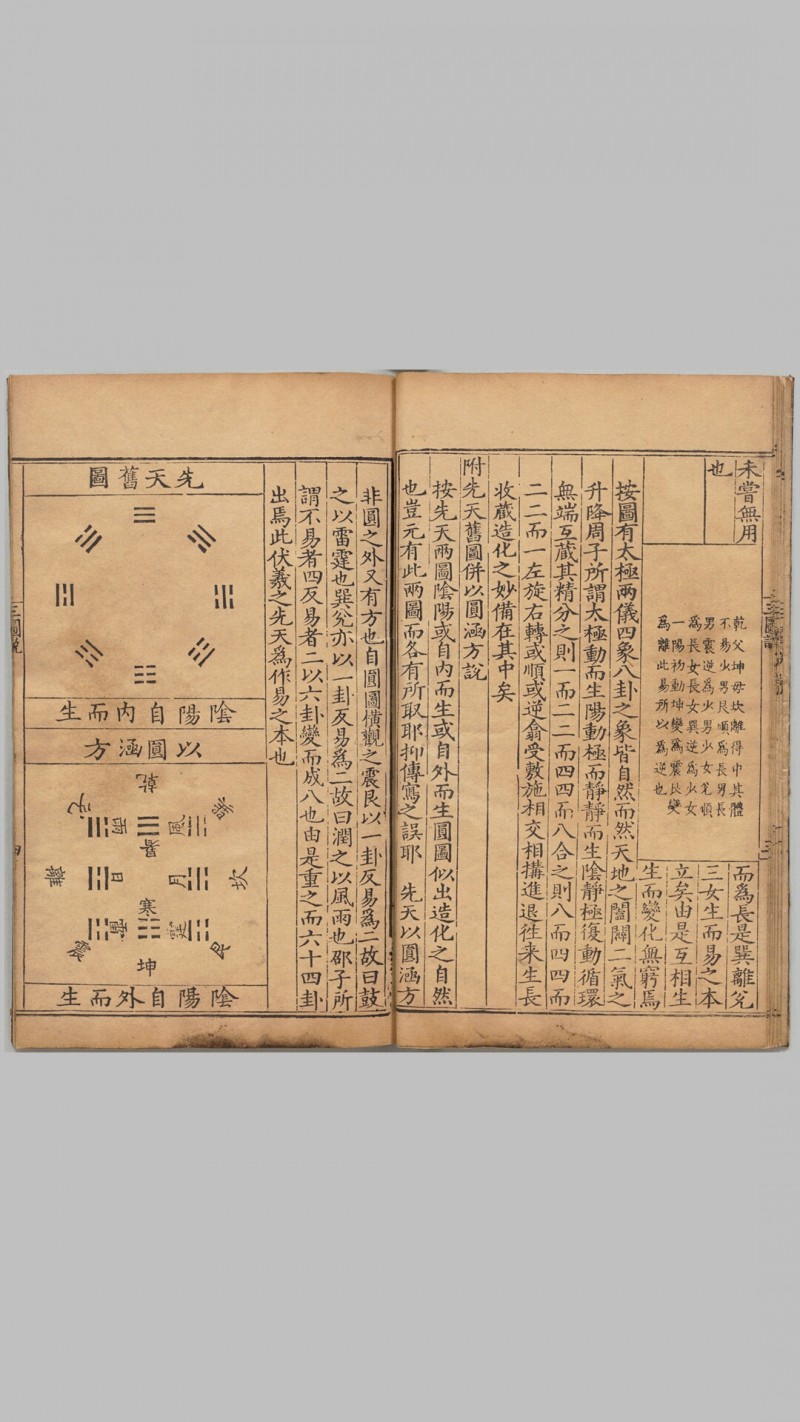 未嘗無用
也
乾父坤母坎離得中其體
不易少男艮順爲長男長
男震逆爲少男少女兌順
爲長女長女巽逆爲少女
一陽初動坤變爲震艮變
爲離此易所以爲逆也
而爲長是巽離兌
三女生而易之本
立矣由是互相生
生而變化無窮焉
按圖有太極兩儀四象八卦之象皆自然而然天地之闔闢二氣之
升降周子所謂太極動而生陽動極而靜靜而生陰靜極復動循環
無端互藏其精分之則一而二二而四四而八合之則八而四四而
二二而一左旋右轉或順或逆翕受敷施相交相搆進退徃来生長
收藏造化之妙備在其中矣
附先天舊圖併以圓涵方說
按先天兩圖陰陽或自内而生或自外而生圓圖似出造化之自然
也豈元有此兩圖而各有所取耶抑傳寫之誤耶 先天以圓涵方
非圓之外又有方也自圓圖横觀之震艮以一卦反易爲二故曰鼓
之以雷霆也巽兌亦以一卦反易爲二故曰潤之以風雨也邵子所
謂不易者四反易者二以六卦變而成八也由是重之而六十四卦
出焉此伏羲之先天爲作易之本也
先天舊圖
陰陽自内而生
以圓涵方
乾
兌
巽
雨
風
暑
離
日
月
坎
寒
震
艮
坤
陰陽自外而生
三圖說